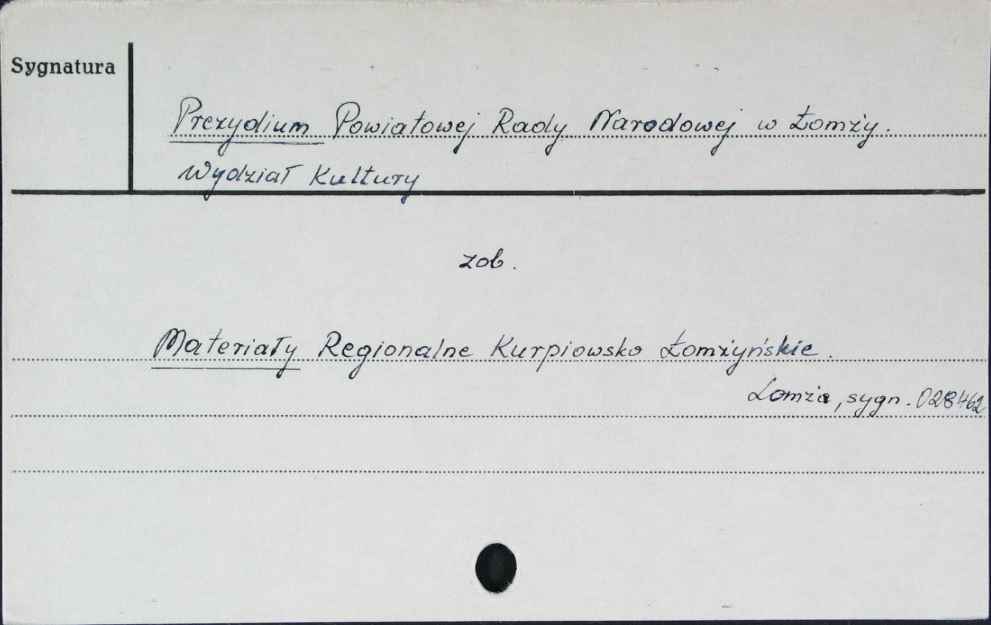 Sygnatura
Prezydium Powiatowej Rady Narodowej w Łomży.
Wydział Kultury
zob.
Materiały Regionalne Kurpiowsko Łomżyńskie.
Łomża, sygn. 028462